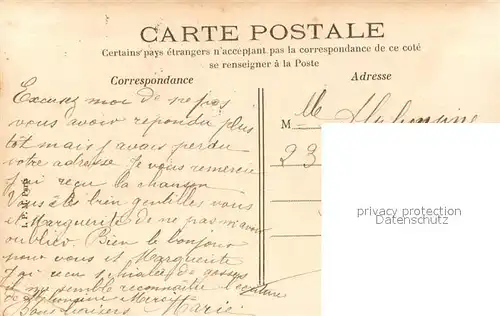 CARTE POSTALE
Certains pays étrangers n'acceptant pas la correspondance de ce coté
se renseigner à la Poste
Correspondance
Adresse
Excusez moi de ne pas
vous avoir repondu plus
tôt mais j'avais perdu
votre adresse Je vous remercie
J'ai reçu la chanson
Vous êtes bien gentilles vous
et Marguerite de ne pas m'avoir
oublier. Bien le bonjour
pour vous et Marguerite
J'ai reçu de gosses
il me semble reconnaitre l'ecriture
Bons baisers Marie
M Mlle
23
privacy protection
watermark